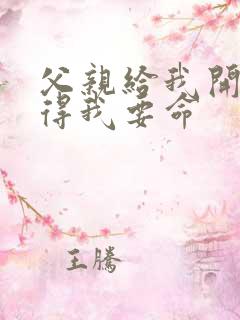 父親給我開
得我要命
王騰